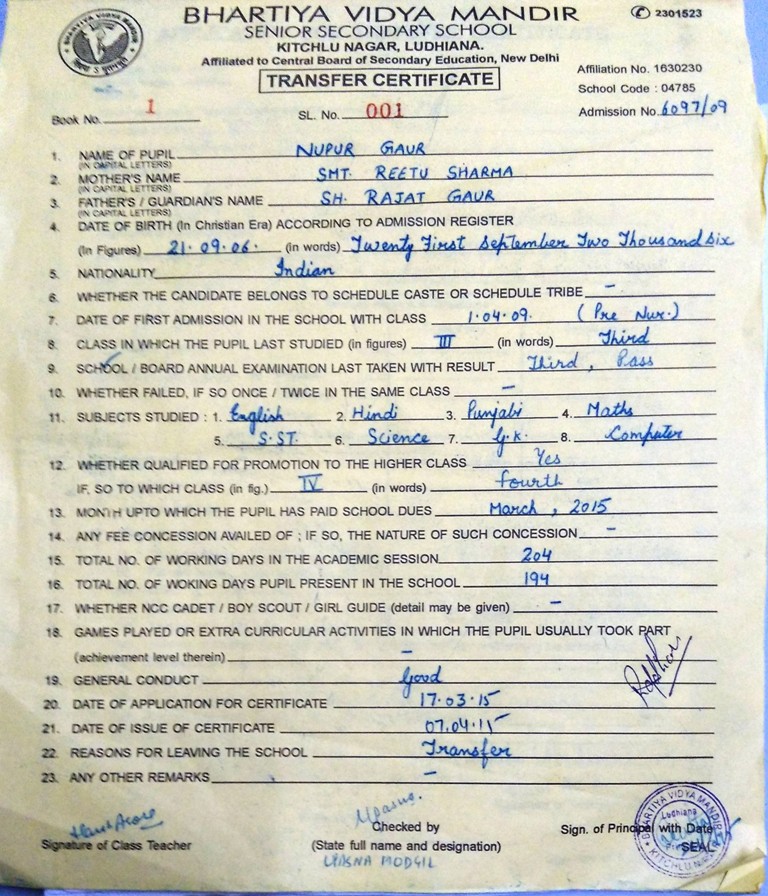 BHARTIYA VIDYA MANDIR
✆ 2301523
SENIOR SECONDARY SCHOOL
KITCHLU NAGAR, LUDHIANA.
Affiliated to Central Board of Secondary Education, New Delhi
Affiliation No. 1630230
TRANSFER CERTIFICATE
School Code : 04785
Book No. 1 SL. No. 001 Admission No. 6097/09
1. NAME OF PUPIL NUPUR GAUR
(IN CAPITAL LETTERS)
2. MOTHER'S NAME SMT. REETU SHARMA
(IN CAPITAL LETTERS)
3. FATHER'S / GUARDIAN'S NAME SH. RAJAT GAUR
(IN CAPITAL LETTERS)
4. DATE OF BIRTH (In Christian Era) ACCORDING TO ADMISSION REGISTER
(In Figures) 21.09.06. (in words) Twenty First September Two Thousand six
5. NATIONALITY Indian
6. WHETHER THE CANDIDATE BELONGS TO SCHEDULE CASTE OR SCHEDULE TRIBE –
7. DATE OF FIRST ADMISSION IN THE SCHOOL WITH CLASS 1.04.09. (Pre Nur.)
8. CLASS IN WHICH THE PUPIL LAST STUDIED (in figures) III (in words) Third
9. SCHOOL / BOARD ANNUAL EXAMINATION LAST TAKEN WITH RESULT Third, Pass
10. WHETHER FAILED, IF SO ONCE / TWICE IN THE SAME CLASS –
11. SUBJECTS STUDIED : 1. English 2. Hindi 3. Punjabi 4. Maths
5. S.ST. 6. Science 7. G.K. 8. Computer
12. WHETHER QUALIFIED FOR PROMOTION TO THE HIGHER CLASS Yes
IF, SO TO WHICH CLASS (in fig.) IV (in words) fourth
13. MONTH UPTO WHICH THE PUPIL HAS PAID SCHOOL DUES March, 2015
14. ANY FEE CONCESSION AVAILED OF ; IF SO, THE NATURE OF SUCH CONCESSION –
15. TOTAL NO. OF WORKING DAYS IN THE ACADEMIC SESSION 204
16. TOTAL NO. OF WOKING DAYS PUPIL PRESENT IN THE SCHOOL 194
17. WHETHER NCC CADET / BOY SCOUT / GIRL GUIDE (detail may be given) –
18. GAMES PLAYED OR EXTRA CURRICULAR ACTIVITIES IN WHICH THE PUPIL USUALLY TOOK PART
(achievement level therein) –
19. GENERAL CONDUCT Good
20. DATE OF APPLICATION FOR CERTIFICATE 17.03.15
21. DATE OF ISSUE OF CERTIFICATE 07.04.15
22. REASONS FOR LEAVING THE SCHOOL Transfer
23. ANY OTHER REMARKS –
Upasna.
Checked by
Signature of Class Teacher (State full name and designation) Sign. of Principal with Date
UPASNA MODGIL SEAL
BHARTIYA VIDYA MANDIR
Ludhiana
KITCHLU NAGAR